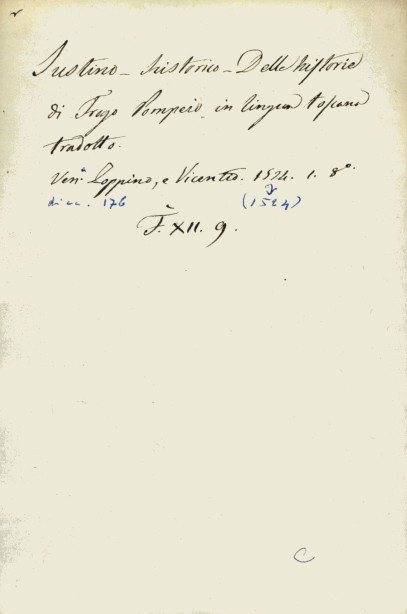 Iustino - historico - Delle historie
di Trogo Pompeio in lingua toscana
tradotto.
Ven.ª Zoppino, e Vicentio. 1524. 1. 8°.
di cc. 176 (1524)
F. XII. 9.
C